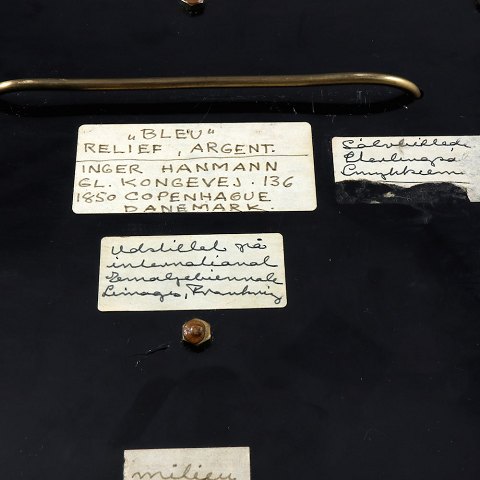 „BLEU"
RELIEF, ARGENT.
INGER HANMANN
GL. KONGEVEJ. 136
1850 COPENHAGUE
DANEMARK.
Sølvbilledet
Udstillet på
international
Emaljebiennale
Limoges, Frankrig
milieu